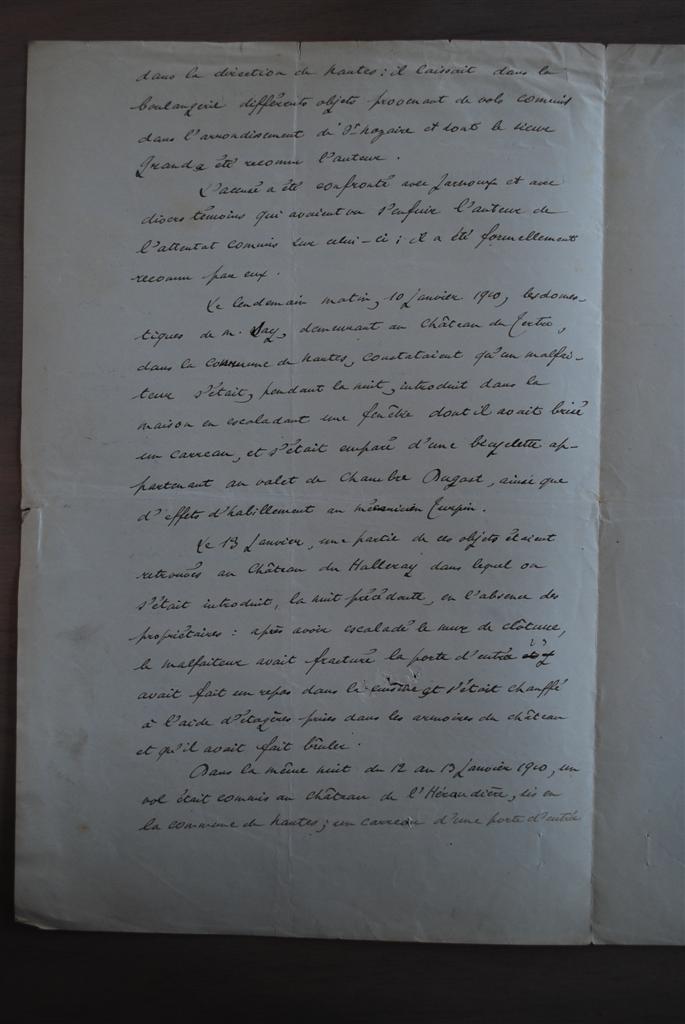 dans la direction de Nantes : il laissait dans la
boulangerie différents objets provenant de vols commis
dans l'arrondissement de St Nazaire et dont le sieur
Grand a été reconnu l'auteur.
L'accusé a été confronté avec Jarnoux et avec
divers témoins qui avaient vu s'enfuir l'auteur de
l'attentat commis sur celui-ci ; il a été formellement
reconnu par eux.
Le lendemain matin, 10 Janvier 1910, les domes-
tiques de M. Say, demeurant au Château du Tertre,
dans la commune de Nantes, constataient qu'un malfai-
teur s'était, pendant la nuit, introduit dans la
maison en escaladant une fenêtre dont il avait brisé
un carreau, et s'était emparé d'une bicyclette ap-
partenant au valet de chambre Dugast, ainsi que
d'effets d'habillement au mécanicien Turpin.
Le 13 Janvier, une partie de ces objets étaient
retrouvés au Château du Halleray dans lequel on
s'était introduit, la nuit précédente, en l'absence des
propriétaires : après avoir escaladé le mur de clôture,
le malfaiteur avait fracturé la porte d'entrée
avait fait un repas dans la cuisine et s'était chauffé
à l'aide d'étagères prises dans les armoires du château
et qu'il avait fait brûler.
Dans la même nuit du 12 au 13 Janvier 1910, un
vol était commis au Château de l'Héraudière, sis en
la commune de Nantes ; un carreau d'une porte d'entrée